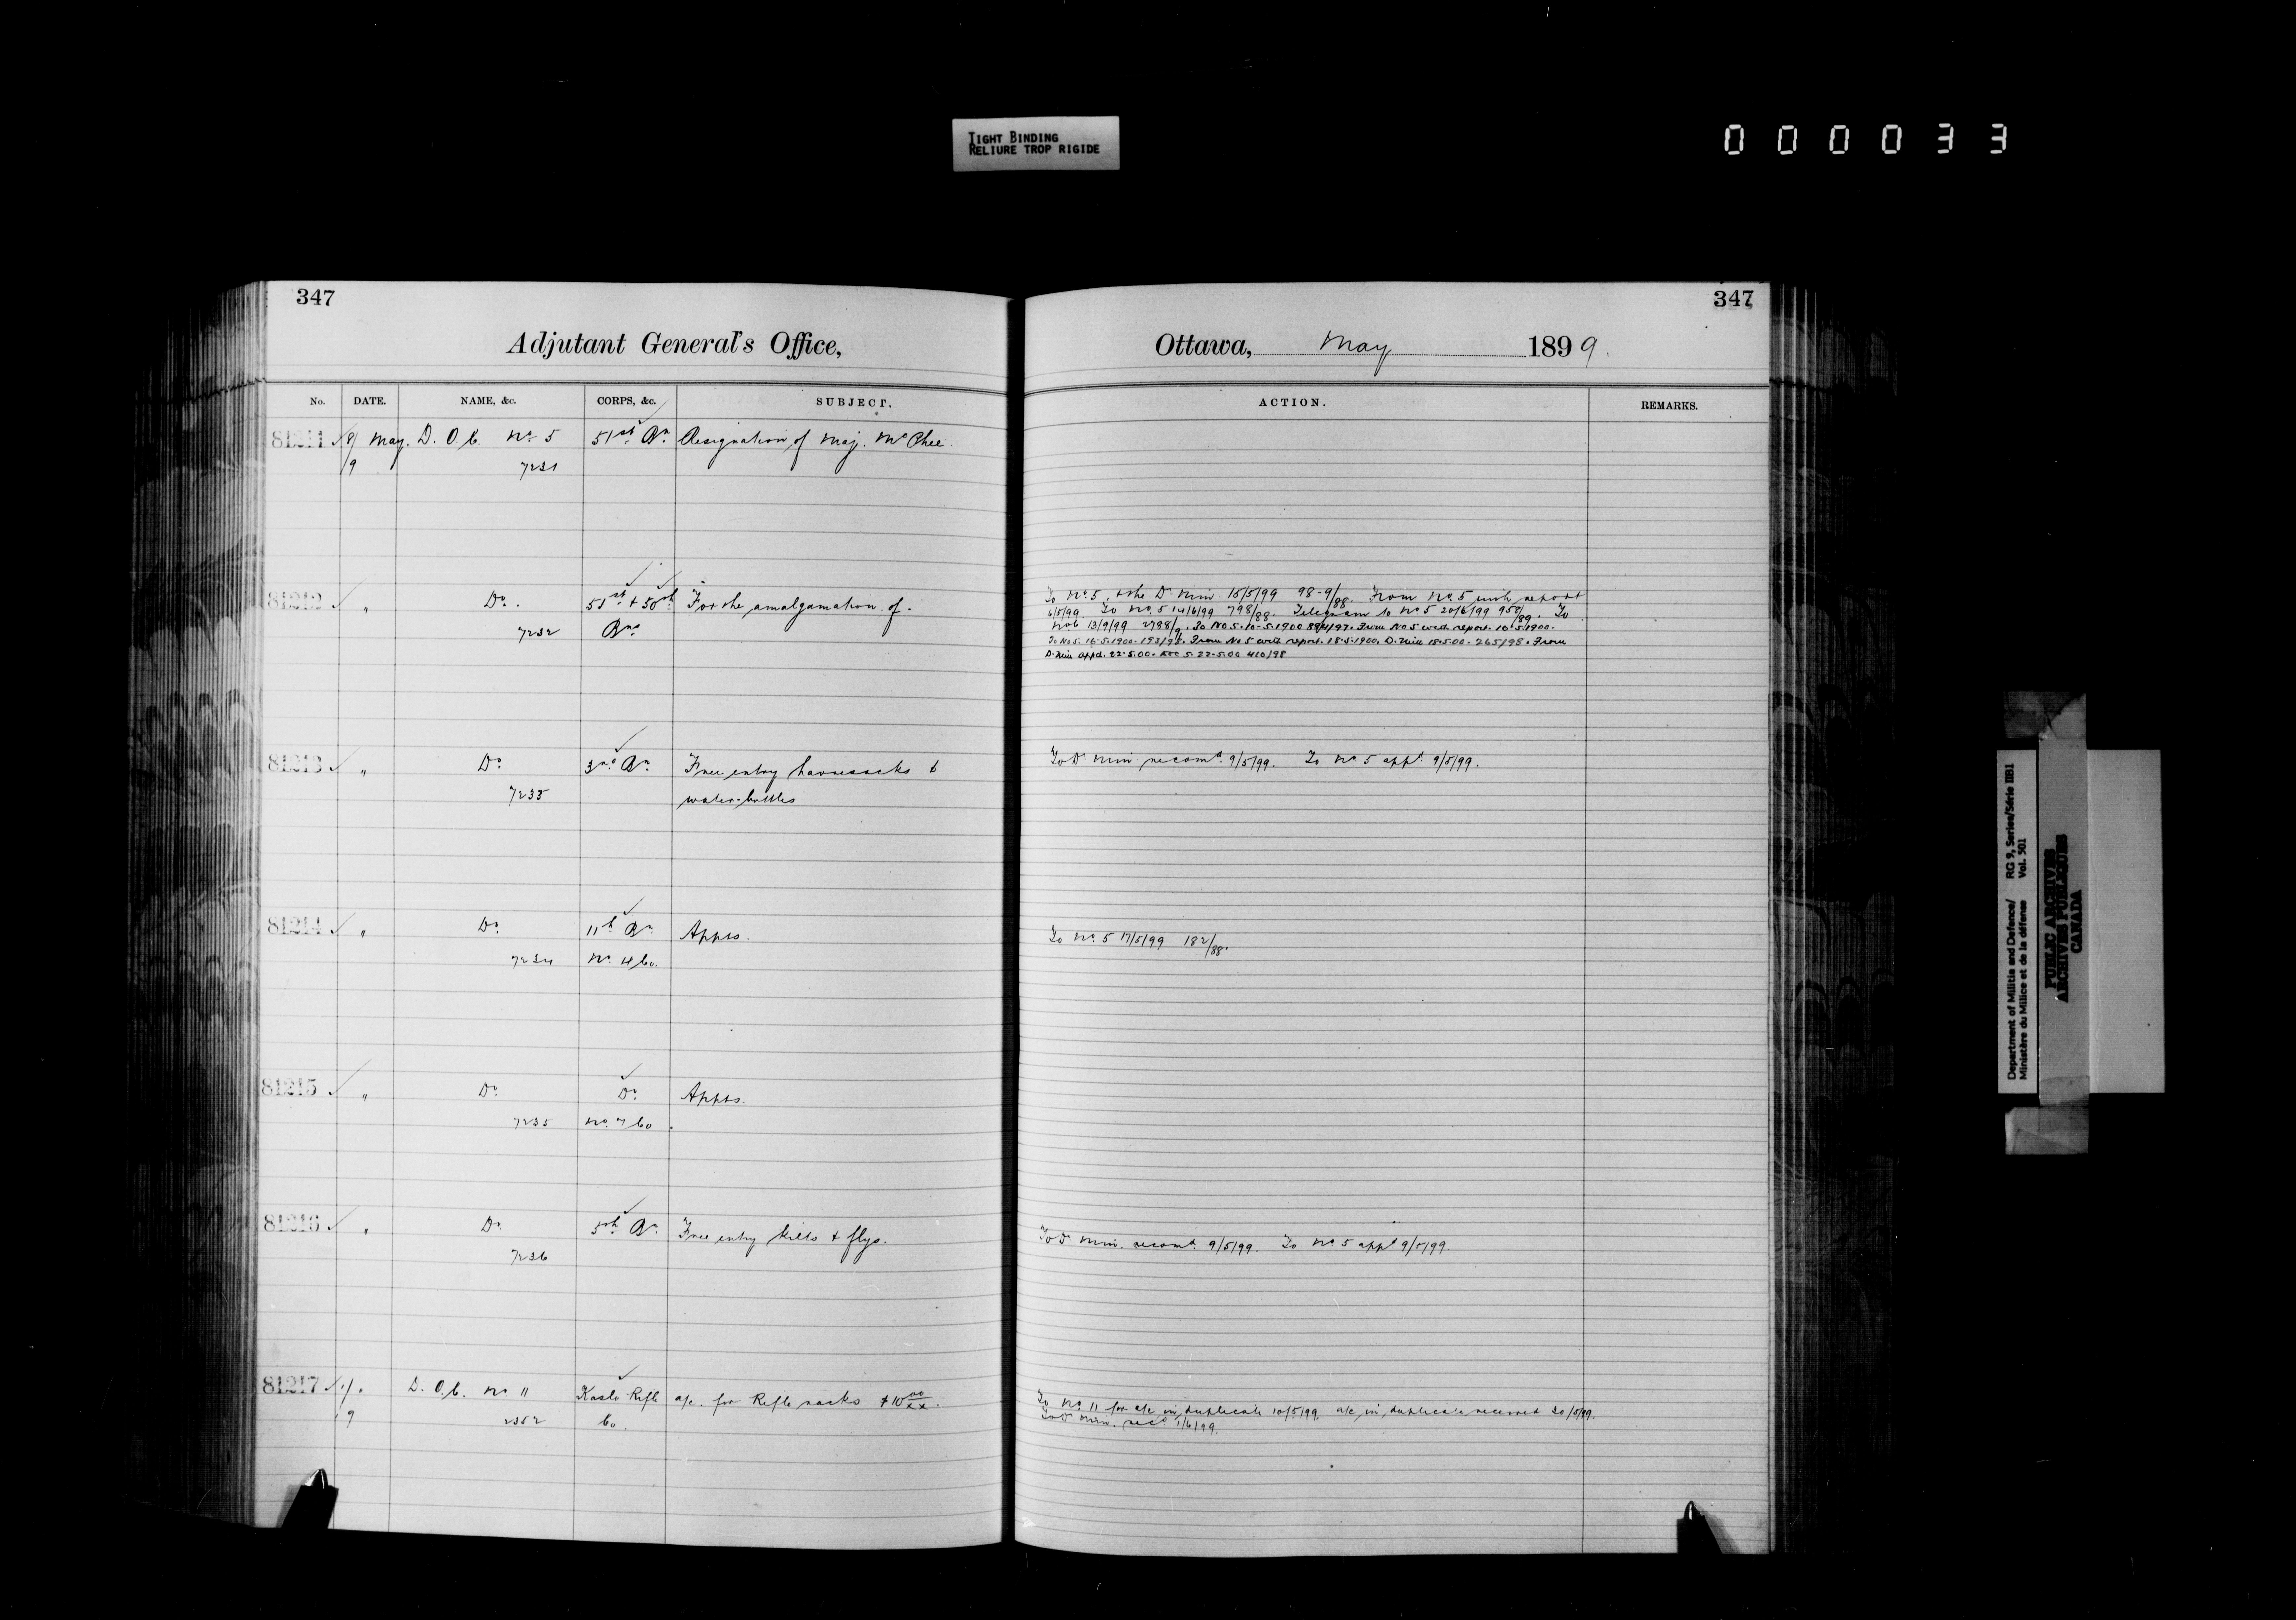 TIGHT BINDING
RELIURE TROP RIGIDE
000033
347
Adjutant General's Office,
No. DATE. NAME, &c. CORPS, &c. SUBJECT.
81211 8/9 May. D. O. C. No 5 51st Bn. Resignation of Maj. McPhee
7231
81212 " Do. 51st + 50th For the amalgamation of.
7232 Bns
81213 " Do. 3rd Bn. Free entry haversacks &
7233 water-bottles
81214 " Do. 11th Bn. Appts.
7234 No. 4 Co.
81215 " Do. Do. Appts.
7235 No. 7 Co.
81216 " Do. 5th Bn. Free entry kilts + flys.
7236
81217 " D. O. C. No 11 Kaslo Rifle a/c. for Rifle racks $10 00/xx.
9 2352 Co.
347
Ottawa, May 1899.
ACTION. REMARKS.
To No. 5, + the D. Min 15/5/99 98-9/88. From No. 5 with report
6/5/99 To No. 5 14/6/99 798/88. Telegram to No 5 20/6/99 958/89. To
No 6 13/9/99 2798/9. To No 5. 10-5-1900 89/4/97. From No 5 with report. 10-5-1900.
To No 5. 16-5-1900. 153/98. From No 5 with report. 18-5-1900. D. Min 18-5-00. 265/98. From
D. Min appd. 22-5-00. 5. 22-5-00 410/98
To D. Min recomd. 9/5/99. To No. 5 appd. 9/5/99.
To No. 5 17/5/99 182/88.
To D. Min. recomd. 9/5/99. To No. 5 appd 9/5/99.
To No. 11 for a/c in duplicate 10/5/99. a/c in duplicate received 20/5/99.
To D. Min. recd. 1/6/99.
Department of Militia and Defence/ RG 9, Series/Série IIB1
Ministère du Milice et de la défense Vol. 501
PUBLIC ARCHIVES
ARCHIVES PUBLIQUES
CANADA